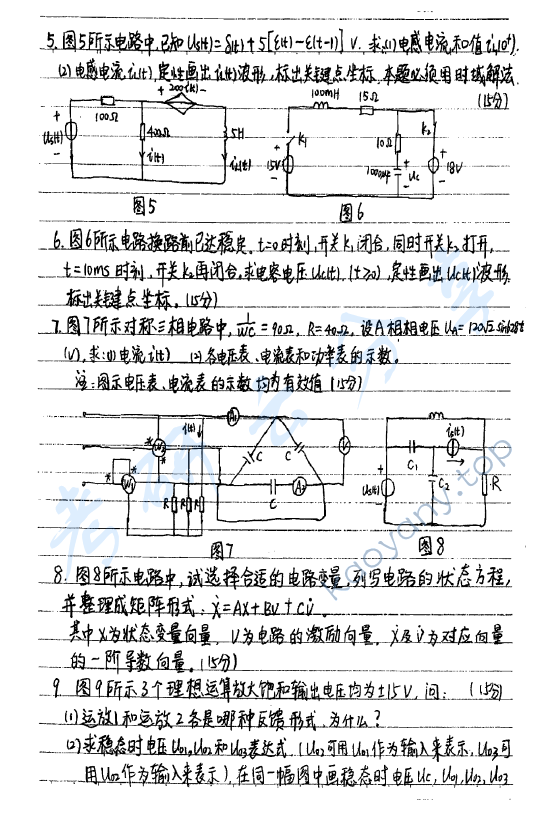 5. 图5所示电路中,已知 Us(t)=δ(t)+5[ε(t)-ε(t-1)] V. 求:(1)电感电流初值 iL(0+).
(2)电感电流iL(t),定性画出iL(t)波形,标出关键点坐标.本题必须用时域解法.
(15分)
+ 200i(t) -
100Ω
400Ω
5H
+
Us(t)
-
i(t)
iL(t)
图5
100mH
15Ω
K1
K2
10Ω
+
15V
-
1000μF
+
Uc
-
+
18V
-
图6
6. 图6所示电路换路前已达稳定. t=0时刻,开关K1闭合,同时开关K2打开,
t=10ms时刻,开关K2再闭合,求电容电压Uc(t), (t≥0),定性画出Uc(t)波形,
标出关键点坐标. (15分)
7. 图7所示对称三相电路中, 1/ωC=90Ω, R=40Ω, 设A相相电压UA=120√2
(V), 求:(1)电流i(t) (2)各电压表、电流表和功率表的示数。
注:图示电压表、电流表的示数均为有效值 (15分)
i(t)
A1
*
*
W2
*
*
W1
R
R
R
C
C
C
A2
V
图7
is(t)
C1
C2
+
Us(t)
-
R
图8
8. 图8所示电路中,试选择合适的电路变量,列写电路的状态方程,
并整理成矩阵形式: ẋ=AX+BV+CV̇.
其中X为状态变量向量, V为电路的激励向量, ẋ及V̇为对应向量
的一阶导数向量. (15分)
9. 图9所示3个理想运算放大饱和输出电压均为±15V, 问: (15分)
(1)运放1和运放2各是哪种反馈形式,为什么?
(2)求稳态时电压Uo1,Uo2和Uo3表达式,(Uo2可用Uo1作为输入来表示,Uo3可
用Uo2作为输入来表示),在同一幅图中画稳态时电压Uc,Uo1,Uo2,Uo3
考研云分享
kaoyany.top